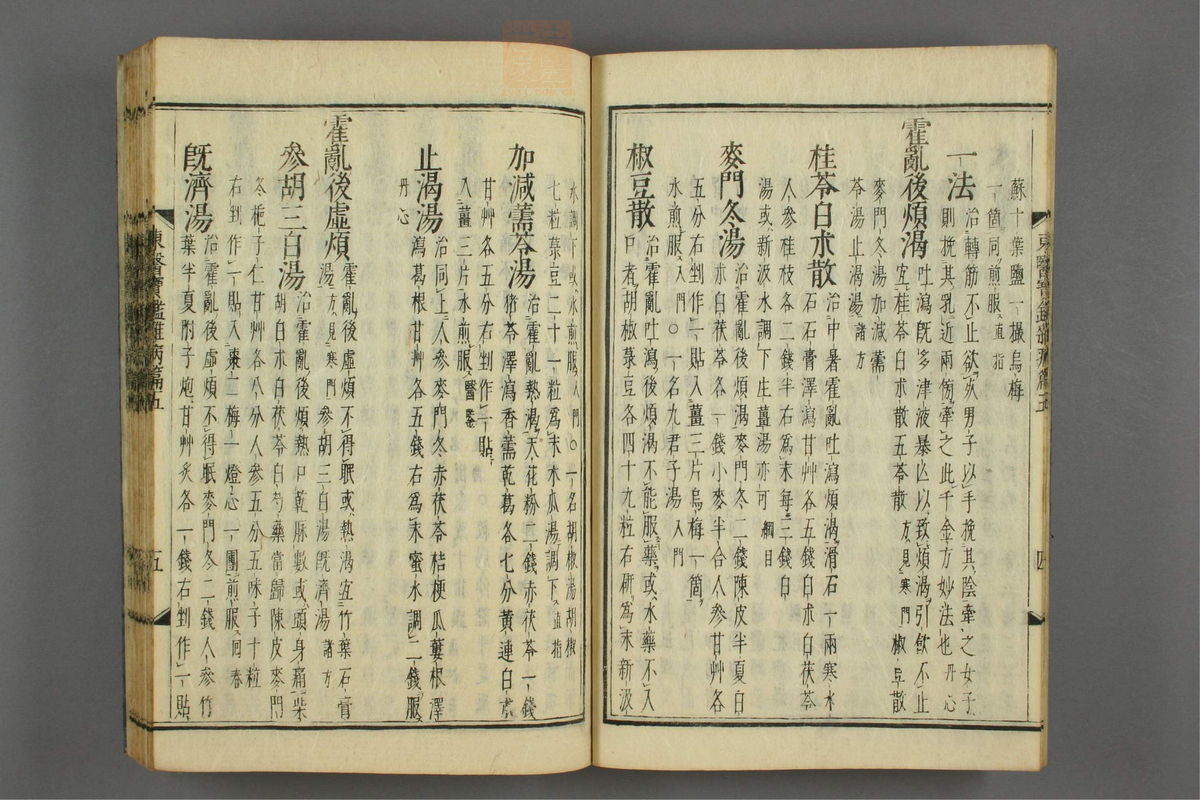 蘇十葉鹽一撮烏梅
一箇同煎服直指
一法治轉筋不止欲死男子以手挽其陰牽之女子
則挽其乳近兩傍牽之此千金方妙法也丹心
霍亂後煩渴吐瀉旣多津液暴亾以致煩渴引飮不止
宜桂苓白朮散五苓散方見寒門椒豆散
麥門冬湯加減薷
苓湯止渴湯諸方
桂苓白朮散治中暑霍亂吐瀉煩渴滑石一兩寒水
石石膏澤瀉甘艸各五錢白朮白茯苓
人參桂枝各二錢半右爲末每三錢白
湯或新汲水調下生薑湯亦可綱目
麥門冬湯治霍亂後煩渴麥門冬二錢陳皮半夏白
朮白茯苓各一錢小麥半合人參甘艸各
五分右剉作一貼入薑三片烏梅一箇
水煎服入門○一名九君子湯入門
椒豆散治霍亂吐瀉後煩渴不能服藥或水藥不入
口者胡椒菉豆各四十九粒右研爲末新汲
東醫寶鑑雜病篇五
四
水調下或水煎服入門○一名胡椒湯胡椒
七粒菉豆二十一粒爲末木瓜湯調下直指
加減薷苓湯治霍亂熱渴天花粉二錢赤茯苓一錢
猪苓澤瀉香薷乾葛各七分黃連白朮
甘艸各五分右剉作一貼
入薑三片水煎服醫鑑
止渴湯治同上人參麥門冬赤茯苓桔梗瓜蔞根澤
瀉葛根甘艸各五錢右爲末蜜水調二錢服
丹心
霍亂後虛煩霍亂後虛煩不得眠或熱渴宜竹葉石膏
湯方見寒門參胡三白湯旣濟湯諸方
參胡三白湯治霍亂後煩熱口乾脉數或頭身痛柴
胡白朮白茯苓白芍藥當歸陳皮麥門
冬梔子仁甘艸各八分人參五分五味子十粒
右剉作一貼入棗二梅一燈心一團煎服回春
旣濟湯治霍亂後虛煩不得眠麥門冬二錢人參竹
葉半夏附子炮甘艸炙各一錢右剉作一貼
東醫寶鑑雜病篇五
五